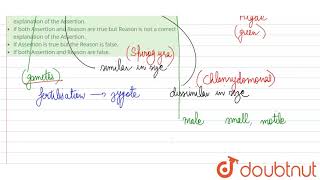 explanation of the Assertion.
• If both Assertion and Reason are true but Reason is not a correct
explanation of the Assertion.
• If Assertion is true but the Reason is false.
• If both Assertion and Reason are false.
Algae
(green)
(Spirogyra)
similar in size
(gametes)
(Chlamydomonas)
fertilisation → zygote
dissimilar in size
male small, motile
doubtnut